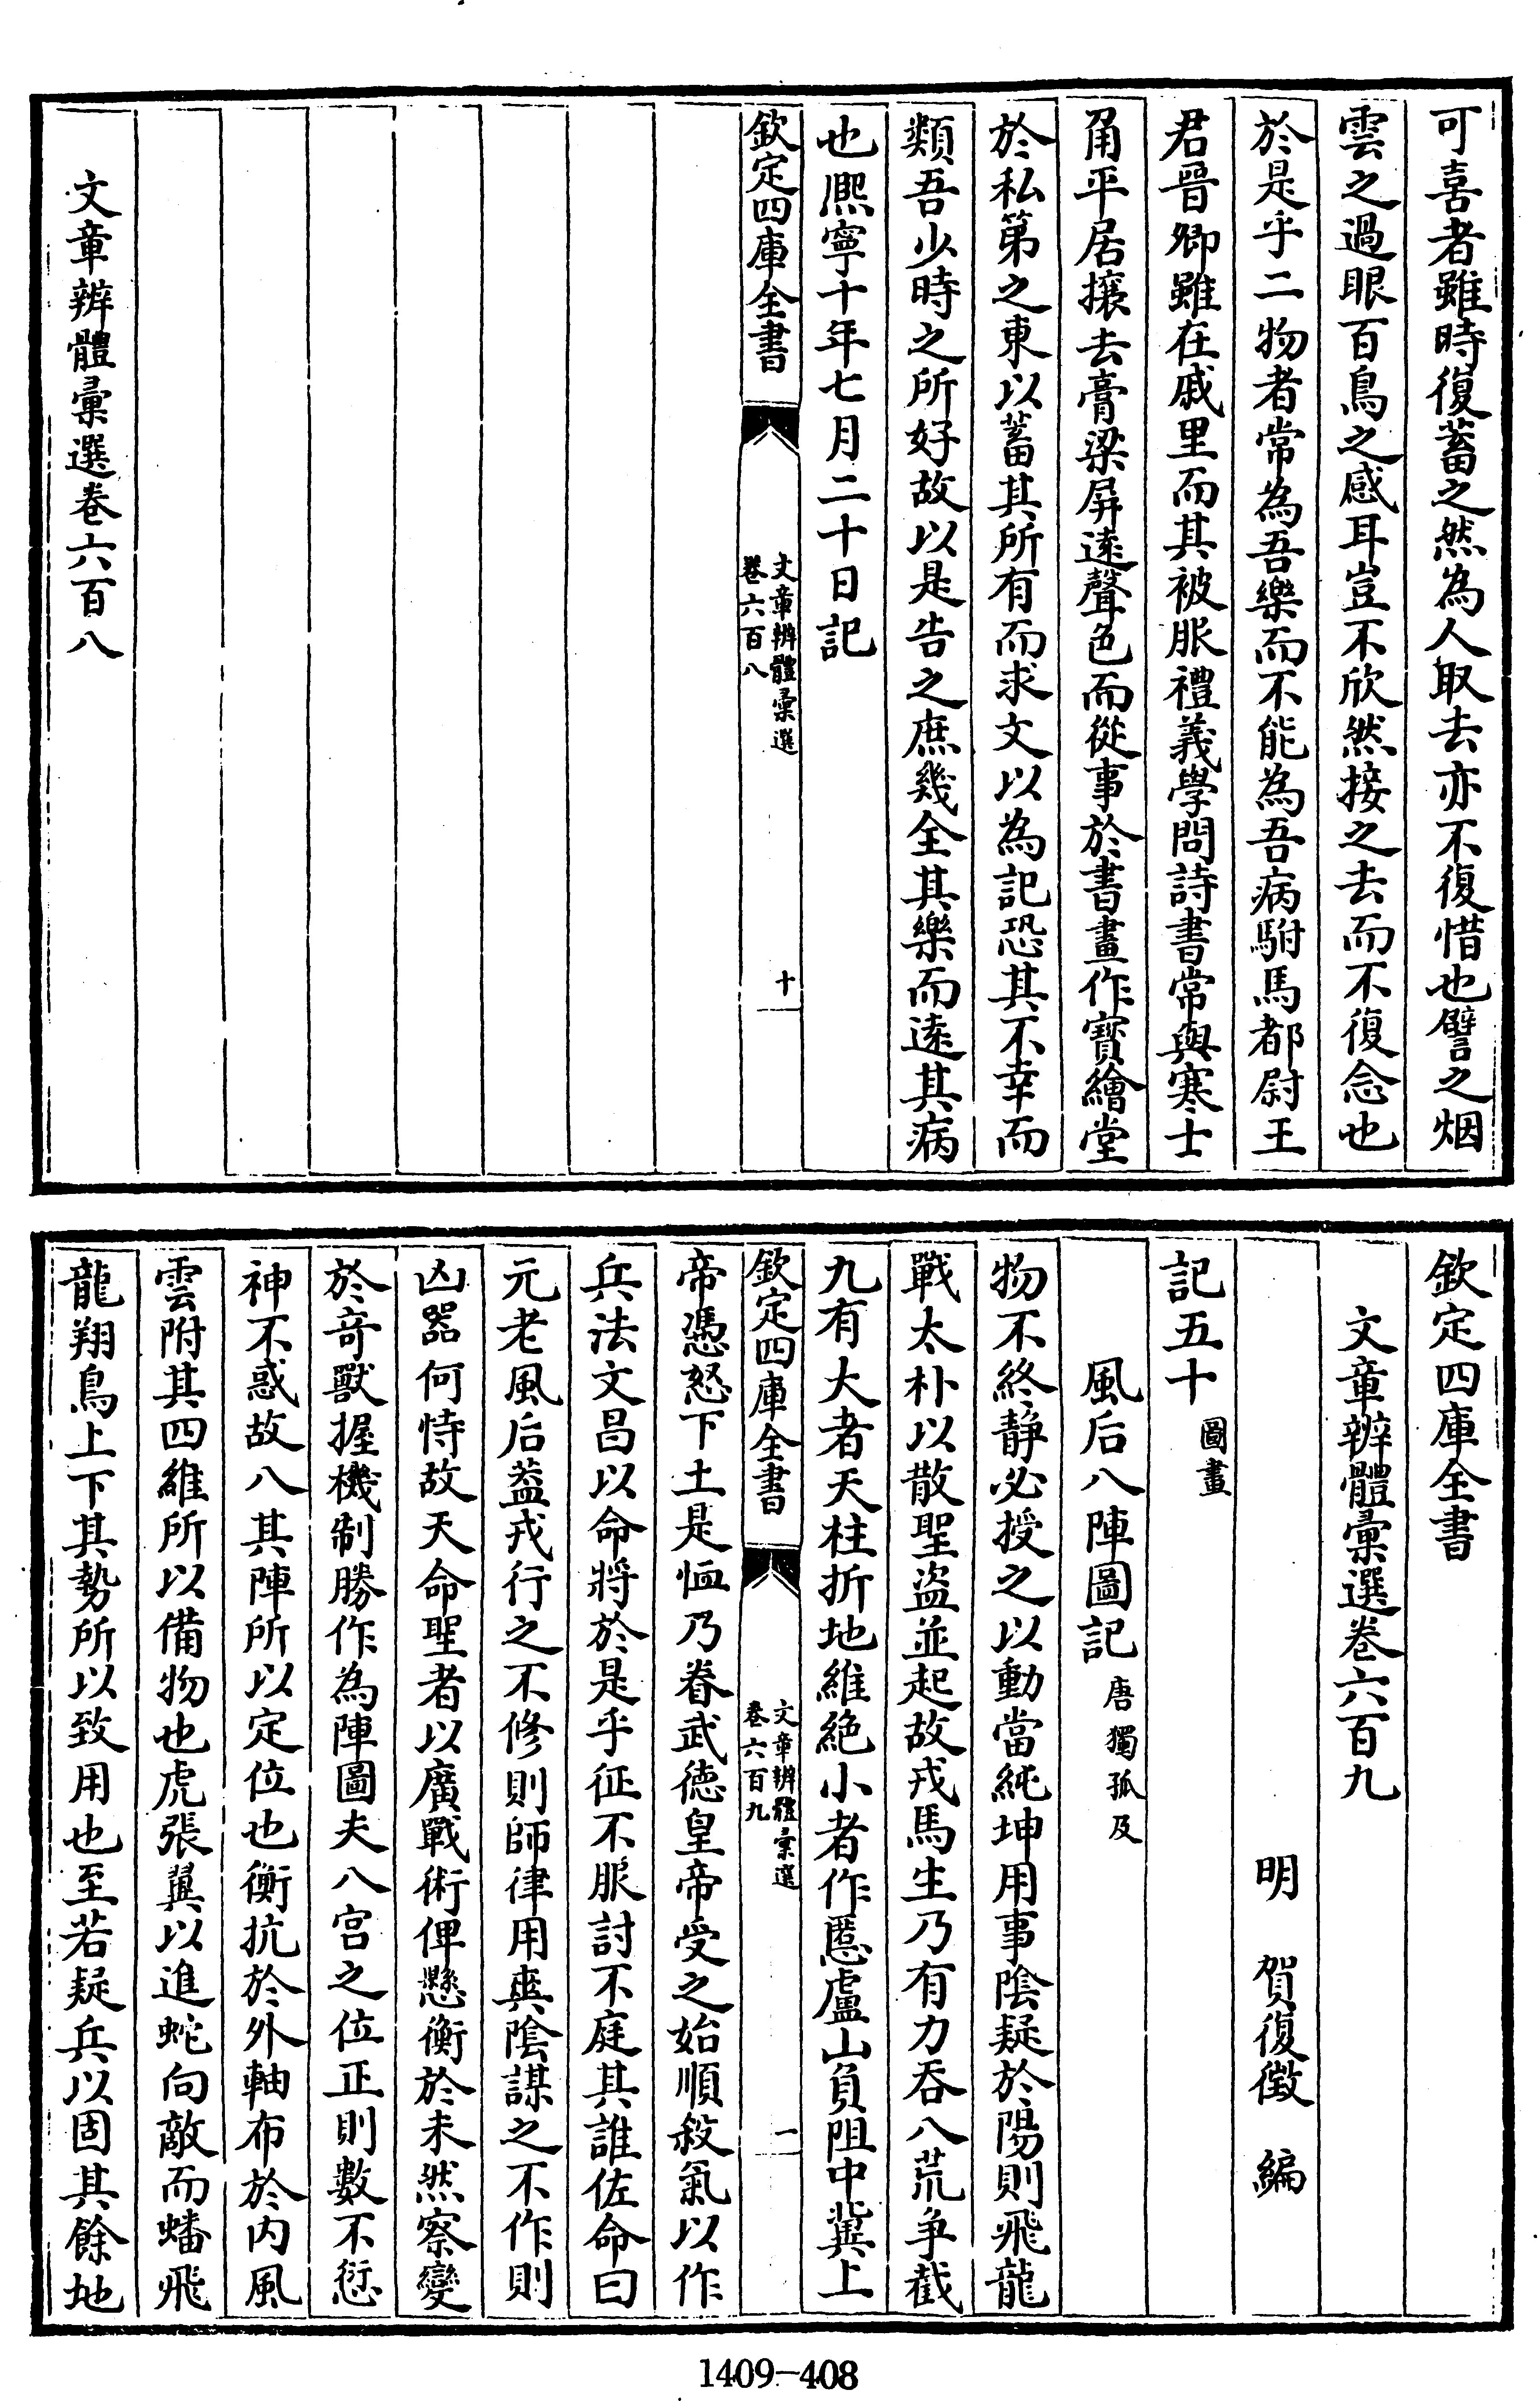 可喜者雖時復蓄之然為人取去亦不復惜也譬之烟
雲之過眼百鳥之感耳豈不欣然接之去而不復念也
於是乎二物者常為吾樂而不能為吾病駙馬都尉王
君晉卿雖在戚里而其被服禮義學問詩書常與寒士
角平居攘去膏粱屏逺聲色而從事於書畫作寳繪堂
於私第之東以蓄其所有而求文以為記恐其不幸而
類吾少時之所好故以是告之庶幾全其樂而逺其病
也熈寧十年七月二十日記
欽定四庫全書
文章辨體彚選
卷六百八
十
文章辨體彚選卷六百八
欽定四庫全書
文章辨體彚選卷六百九
明 賀復徵 編
記五十
圖畫
風后八陣圖記
唐獨孤及
物不終靜必授之以動當純坤用事陰疑於陽則飛龍
戰太朴以散聖盜並起故戎馬生乃有力吞八荒爭截
九有大者天柱折地維絶小者作慝盧山負阻中冀上
欽定四庫全書
文章辨體彚選
卷六百九
一
帝憑怒下土是恤乃眷武徳皇帝受之始順殺氣以作
兵法文昌以命將於是乎征不服討不庭其誰佐命曰
元老風后葢戎行之不修則師律用爽陰謀之不作則
凶器何恃故天命聖者以廣戰術俾懸衡於未然察變
於竒獸握機制勝作為陣圖夫八宮之位正則數不愆
神不惑故八其陣所以定位也衡抗於外軸布於内風
雲附其四維所以備物也虎張翼以進蛇向敵而蟠飛
龍翔鳥上下其勢所以致用也至若疑兵以固其餘地
1409-408